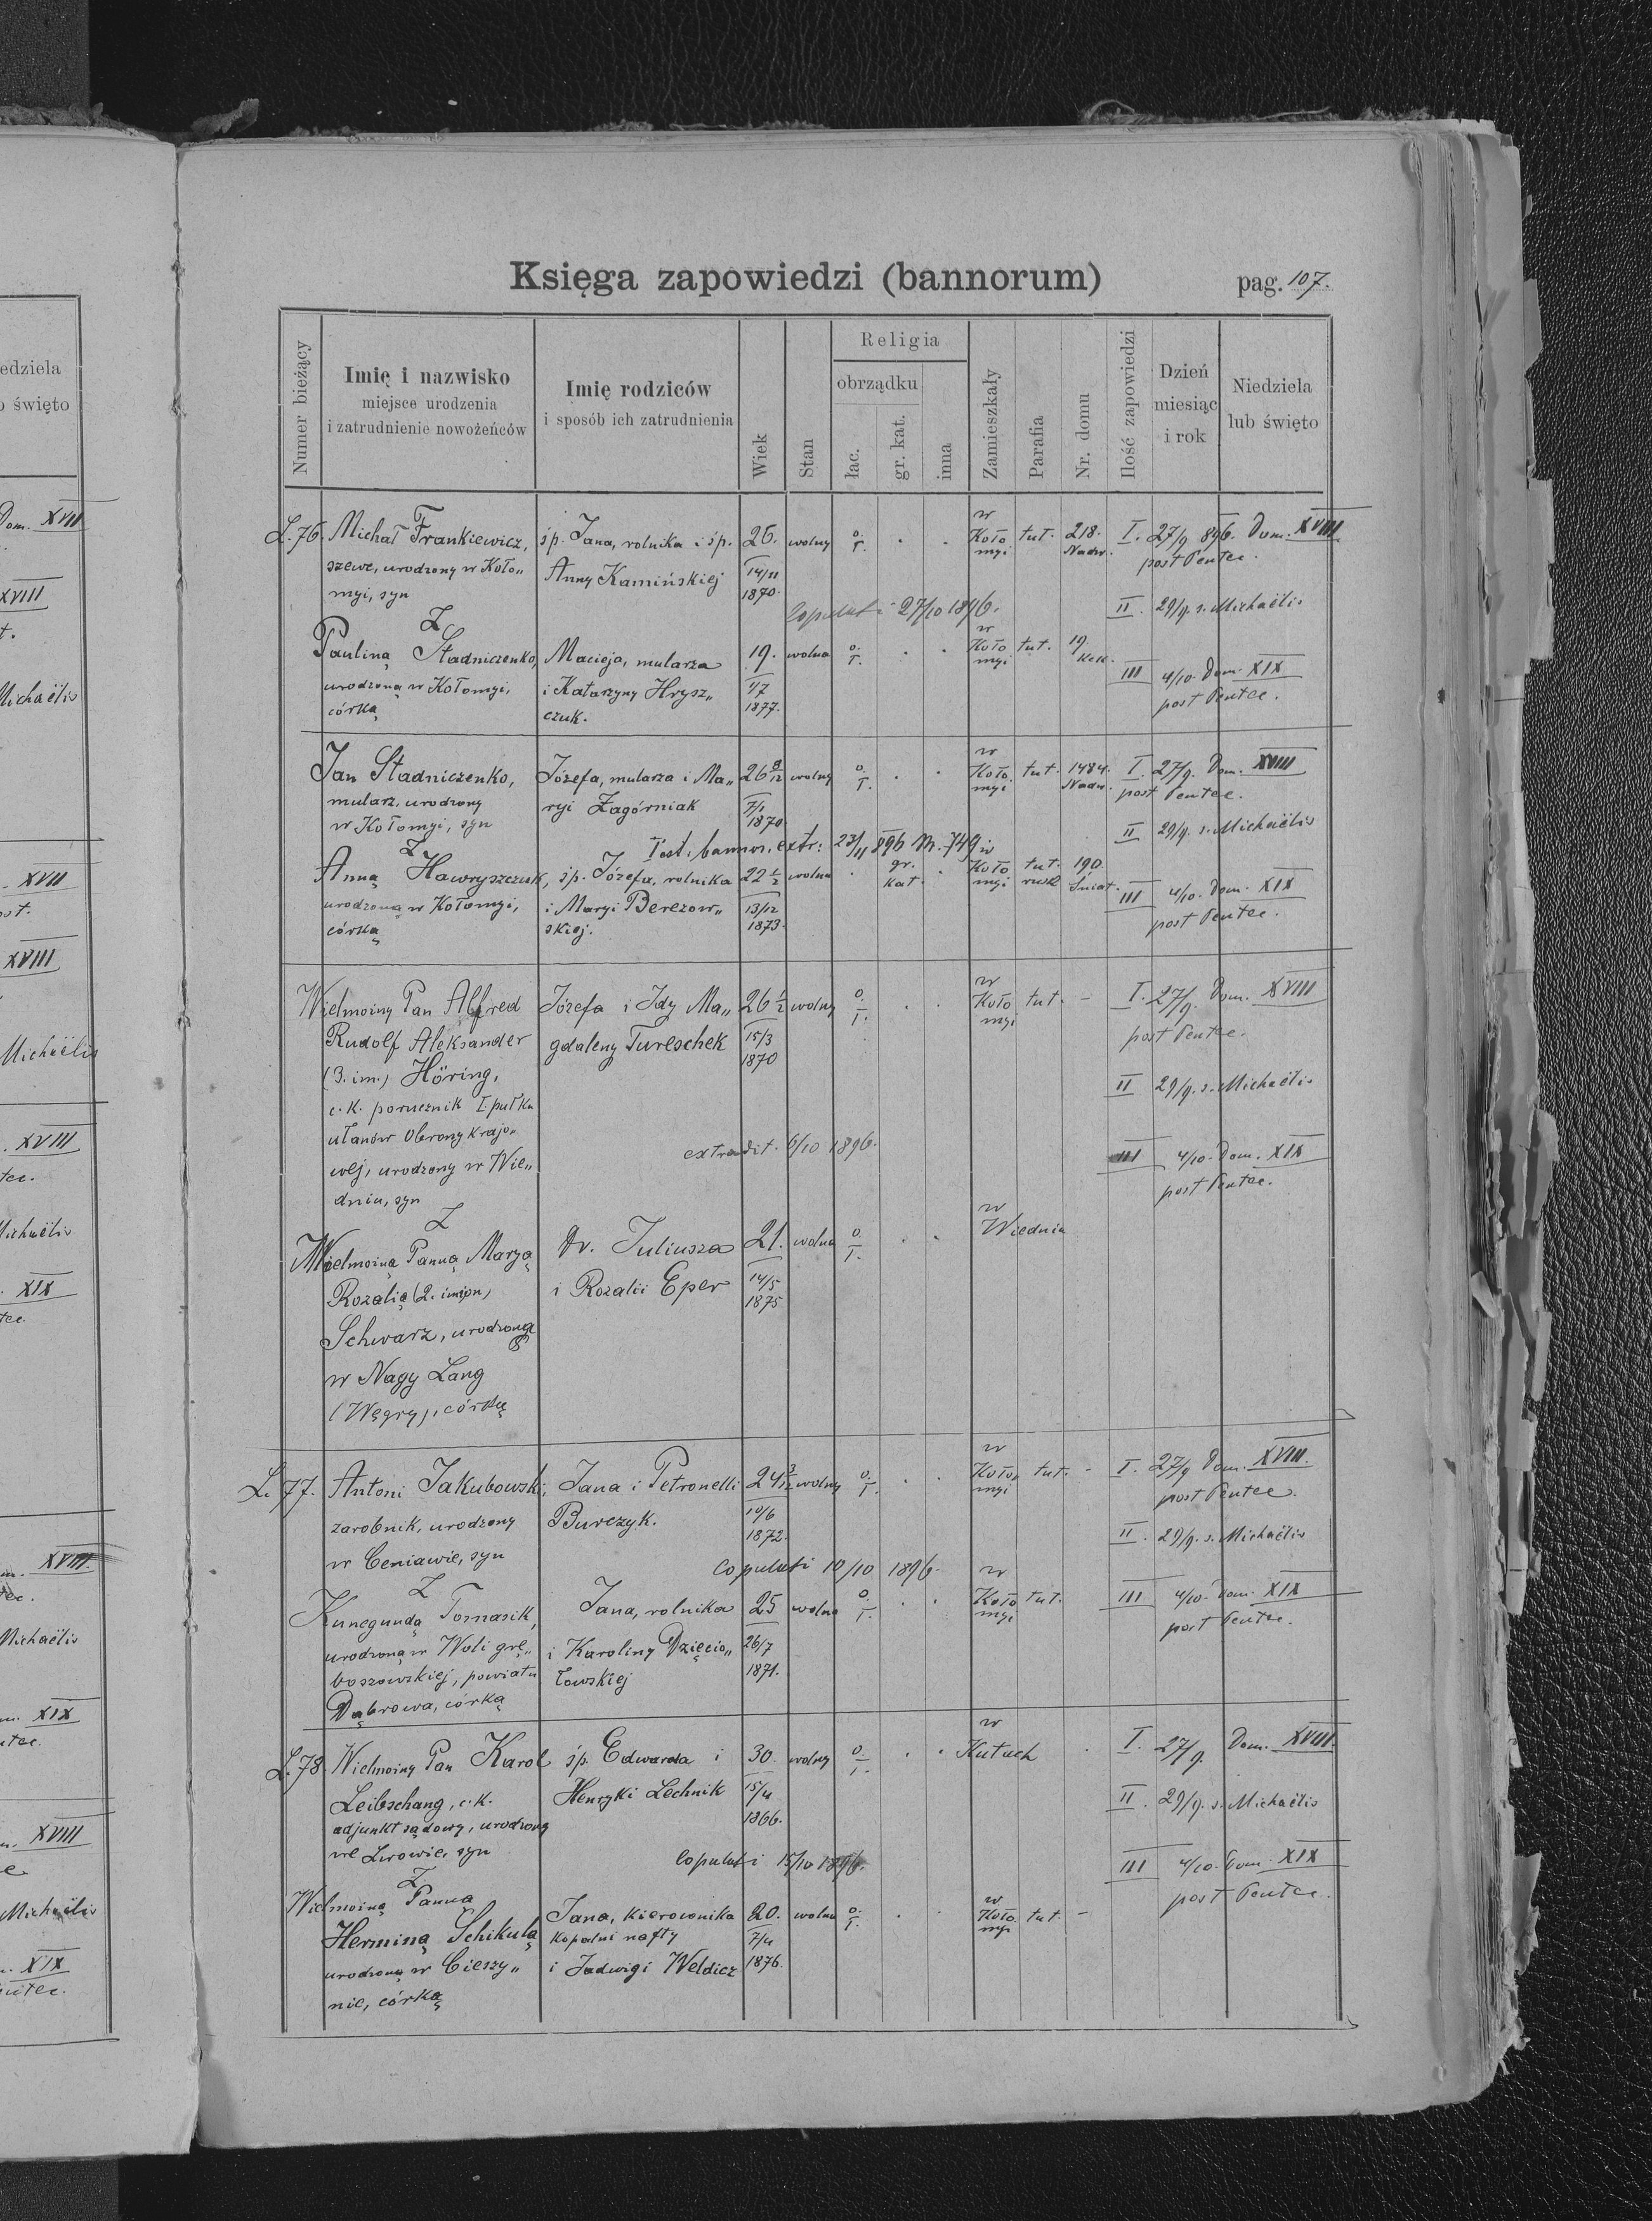 Księga zapowiedzi (bannorum) pag. 107.
Numer bieżący
Imię i nazwisko
miejsce urodzenia
i zatrudnienie nowożeńców
Imię rodziców
i sposób ich zatrudnienia
Wiek
Stan
Religia
obrządku
łac.
gr. kat.
inna
Zamieszkały
Parafia
Nr. domu
Ilość zapowiedzi
Dzień
miesiąc
i rok
Niedziela
lub święto
L.76. Michał Frankiewicz, śp. Jana, rolnika i śp. 26. wolny o. w Koło tut. 218. I. 27/9 896. Dom. XVIII
szewc, urodzony w Koło„ Anny Kamińskiej 14/11 r. myi Nadw. post Pentec.
myi, syn 1870. Copulati 27/10 1896. II. 29/9. s. Michaëlis
Z
Pauliną Stadniczenko, Macieja, mularza 19. wolna o. w Koło tut. 19.
urodzoną w Kołomyi, i Katarzyny Hrysz„ 1/7 r. myi III 4/10. Dom. XIX
córką czuk. 1877. post Pentec.
Jan Stadniczenko, Józefa, mularza i Ma„ 26 8/12 wolny o. w Koło tut. 1484. I. 27/9. Dom. XVIII
mularz, urodzony ryi Zagórniak 7/1 r. myi Nadw. post Pentec.
w Kołomyi, syn 1870 II 29/9. s. Michaëlis
Z Test. bannor. extr: 23/11 896 N. 749
Anną Hawryszczuk, śp. Józefa, rolnika 22 1/2 wolna gr. w Koło tut. 190.
urodzoną w Kołomyi, i Maryi Berezow„ 13/12 kat. myi rusk Śniat. III 4/10. Dom. XIX
córką skiej. 1873. post Pentec.
Wielmożny Pan Alfred Józefa i Idy Ma„ 26 1/2 wolny o. w Koło tut. - I. 27/9. Dom. XVIII
Rudolf Aleksander gdaleny Tureschek 15/3 r. myi post Pentec.
(3. im.) Höring, 1870 II 29/9. s. Michaëlis
c. k. porucznik I. pułku
ułanów Obrony krajo„ extradit. 6/10 1896. III 4/10. Dom. XIX
wej, urodzony w Wie„ post Pentec.
dniu, syn
Z
Wielmożną Panną Maryą Dr. Juliusza 21. wolna o. w Wiedniu
Rozalią (2. imion) i Rozalii Eper 14/5 r.
Schwarz, urodzoną 1875
w Nagy Lang
(Węgry), córką
L. 77. Antoni Jakubowski, Jana i Petronelli 24 3/12 wolny o. w Koło tut. - I. 27/9 Dom. XVIII.
zarobnik, urodzony Burczyk. 10/6 r. myi post Pentec.
w Ceniawie, syn 1872. II. 29/9. s. Michaëlis
Z Copulati 10/10 1896.
Kunegundą Tomasik, Jana, rolnika 25 wolna o. w Koło tut. III 4/10. Dom. XIX
urodzoną w Woli grę„ i Karoliny Dzięcio„ 26/7 r. myi post Pentec.
boszowskiej, powiatu łowskiej 1871.
Dąbrowa, córką
L. 78. Wielmożny Pan Karol śp. Edwarda i 30. wolny o. w Kutach I. 27/9. Dom. XVIII
Leibschang, c. k. Henryki Lechnik 15/4 r. II. 29/9. s. Michaëlis
adjunkt sądowy, urodzony 1866.
we Lwowie, syn Copulati 15/10 1896. III 4/10. Dom. XIX
Z post Pentec.
Wielmożną Panną
Herminą Schikulą Jana, kierownika 20. wolna o. w Koło tut. -
kopalni nafty 7/4 r. myi
urodzoną w Cieszy„ i Jadwigi Weldicz 1876.
nie, córką